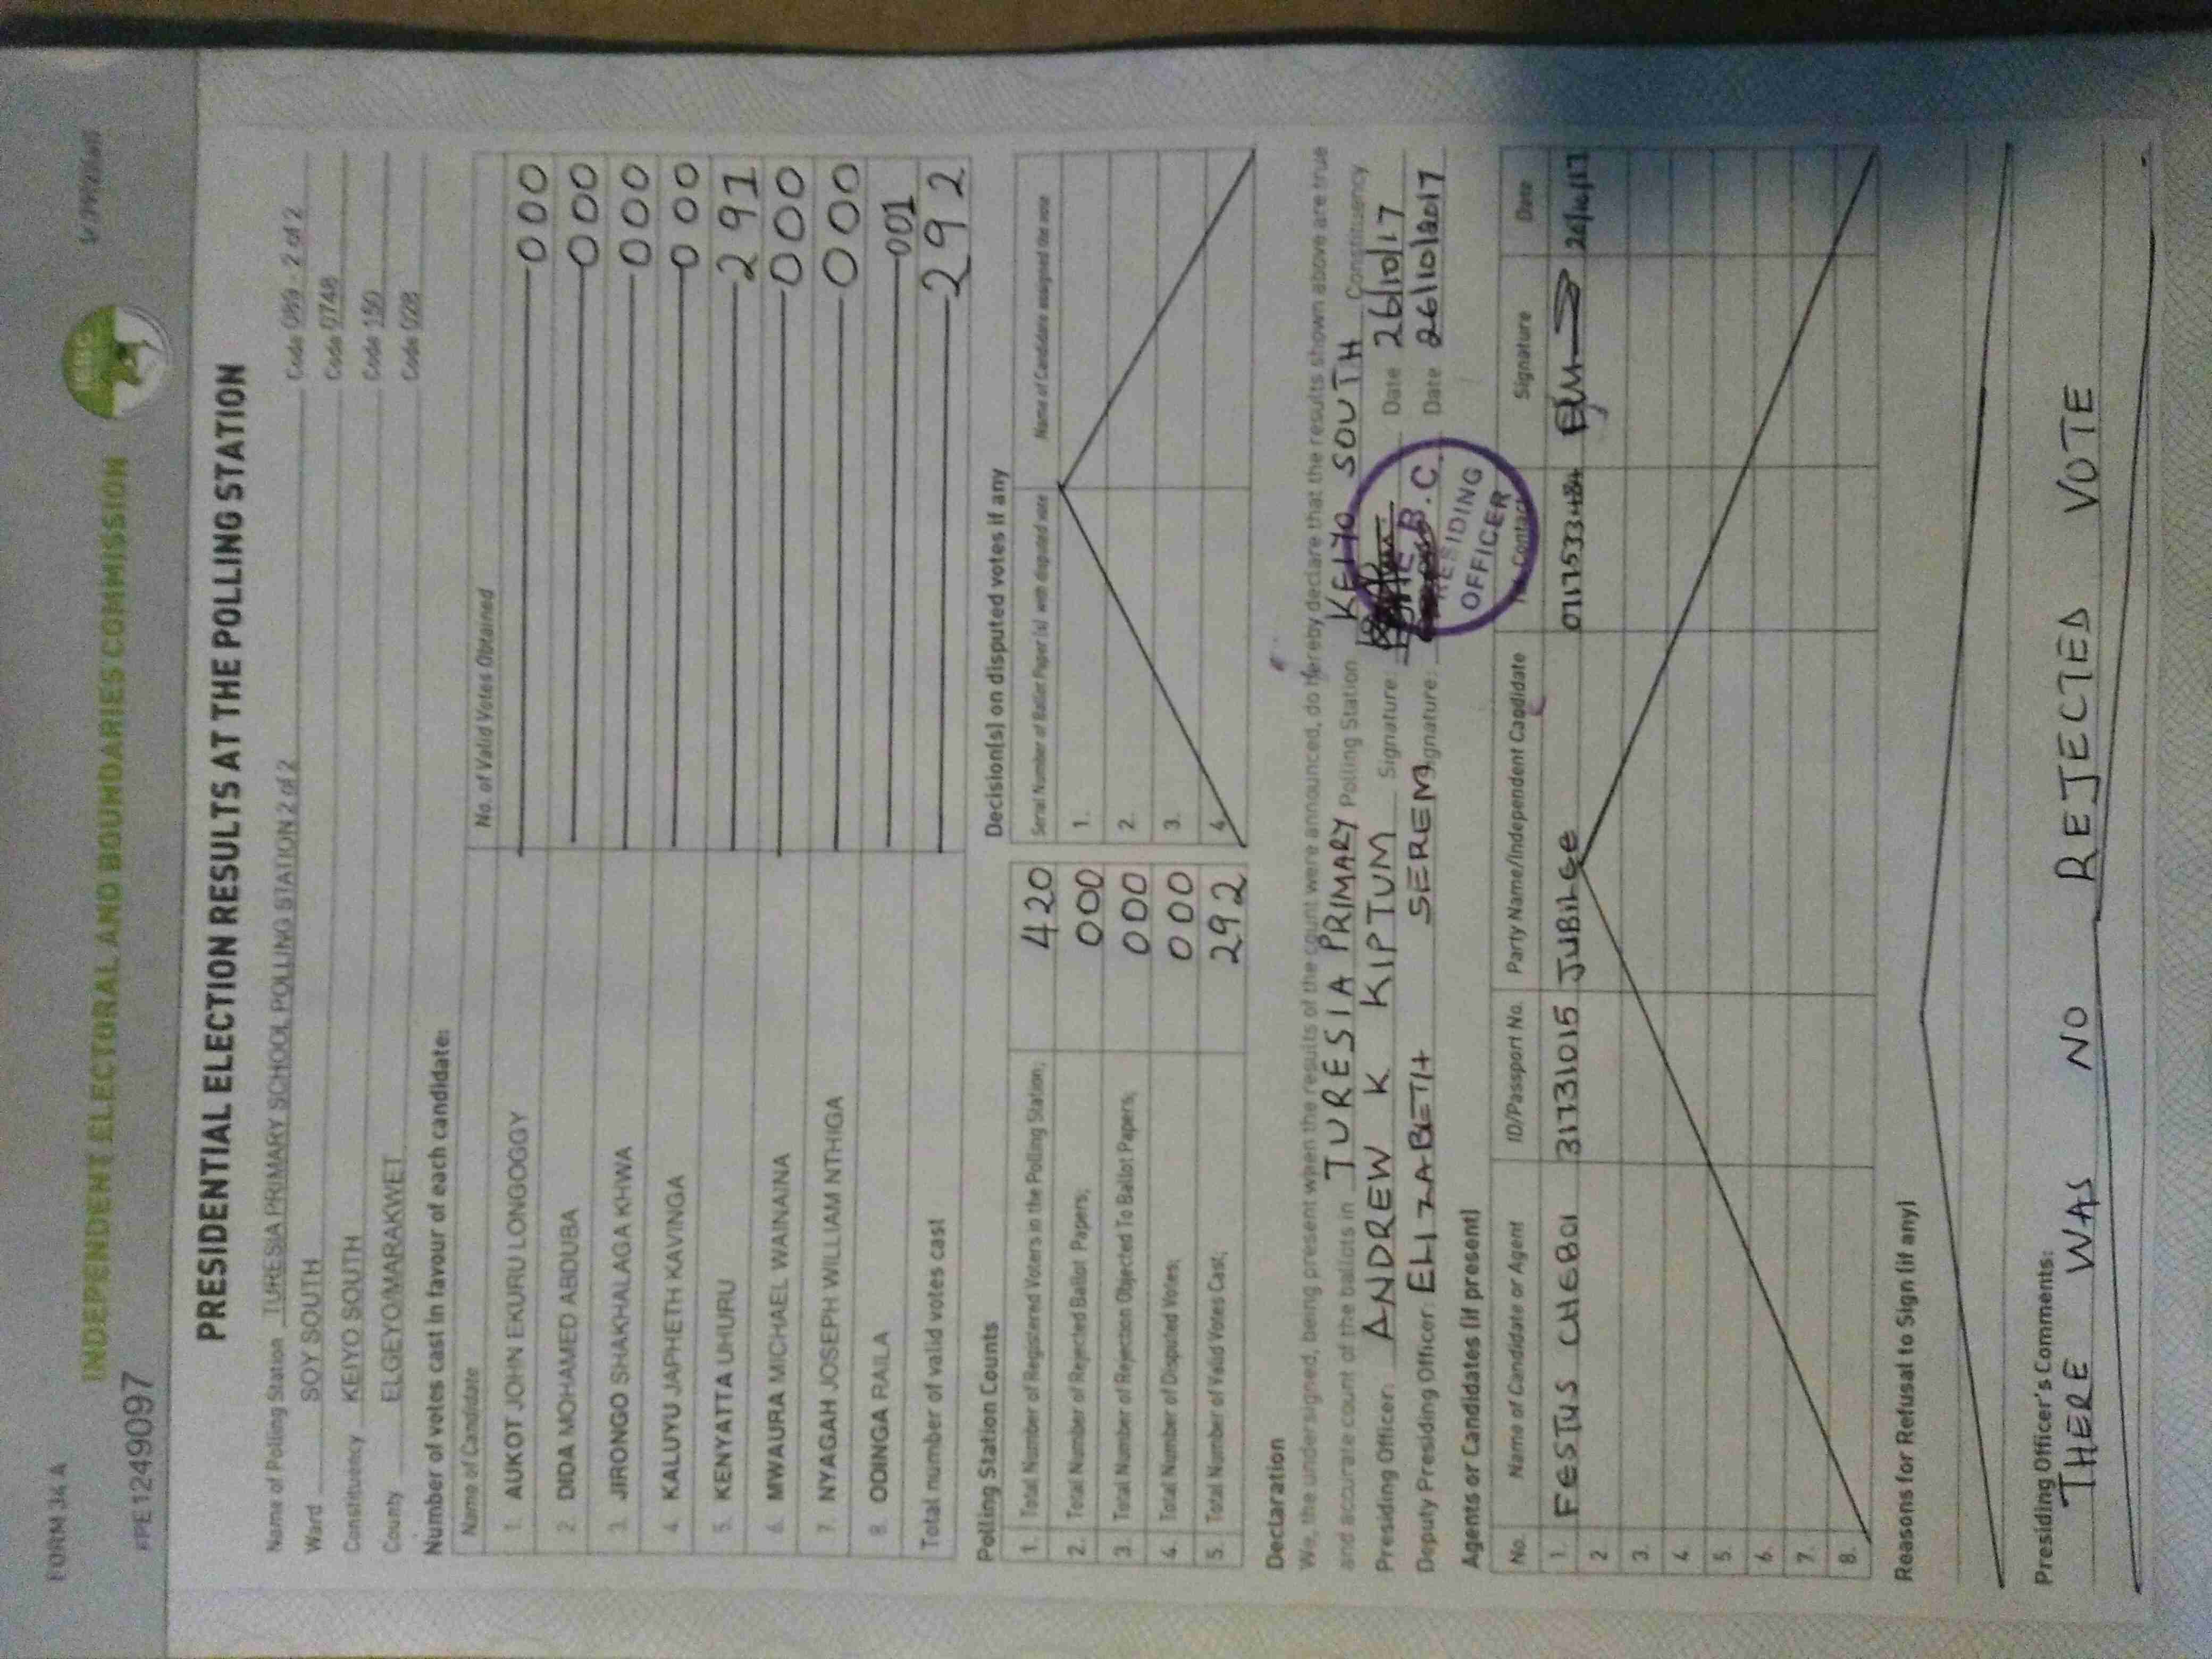 FORM 34 A
INDEPENDENT ELECTORAL AND BOUNDARIES COMMISSION
IEBC
PRESIDENTIAL ELECTION RESULTS AT THE POLLING STATION
Name of Polling Station TURESIA PRIMARY SCHOOL POLLING STATION 2 of 2 Code 089 - 2 of 2
Ward SOY SOUTH Code 0748
Constituency KEIYO SOUTH Code 150
County ELGEYO/MARAKWET Code 028
Number of votes cast in favour of each candidate:
Name of Candidate No. of Valid Votes Obtained
1. AUKOT JOHN EKURU LONGOGGY 000
2. DIDA MOHAMED ABDUBA 000
3. JIRONGO SHAKHALAGA KHWA 000
4. KALUYU JAPHETH KAVINGA 000
5. KENYATTA UHURU 291
6. MWAURA MICHAEL WAINAINA 000
7. NYAGAH JOSEPH WILLIAM NTHIGA 000
8. ODINGA RAILA 001
Total number of valid votes cast 292
Polling Station Counts
1. Total Number of Registered Voters in the Polling Station; 420
2. Total Number of Rejected Ballot Papers; 000
3. Total Number of Rejection Objected To Ballot Papers; 000
4. Total Number of Disputed Votes; 000
5. Total Number of Valid Votes Cast; 292
Decision(s) on disputed votes if any
Serial Number of Ballot Paper (s) with disputed vote Name of Candidate assigned the vote
1.
2.
3.
4.
Declaration
We, the undersigned, being present when the results of the count were announced, do hereby declare that the results shown above are true
and accurate count of the ballots in TURESIA PRIMARY Polling Station KEIYO SOUTH Constituency
Presiding Officer: ANDREW K KIPTUM Signature: Date 26/10/17
Deputy Presiding Officer: ELIZABETH SEREM Signature: Date 26/10/2017
PRESIDING
OFFICER
Agents or Candidates (if present)
No. Name of Candidate or Agent ID/Passport No. Party Name/Independent Candidate Contact Signature Date
1. FESTUS CHEBOI 31731015 JUBILEE 26/10/17
2
3.
4
5.
6.
7.
8.
Reasons for Refusal to Sign (if any)
Presiding Officer's Comments:
THERE WAS NO REJECTED VOTE